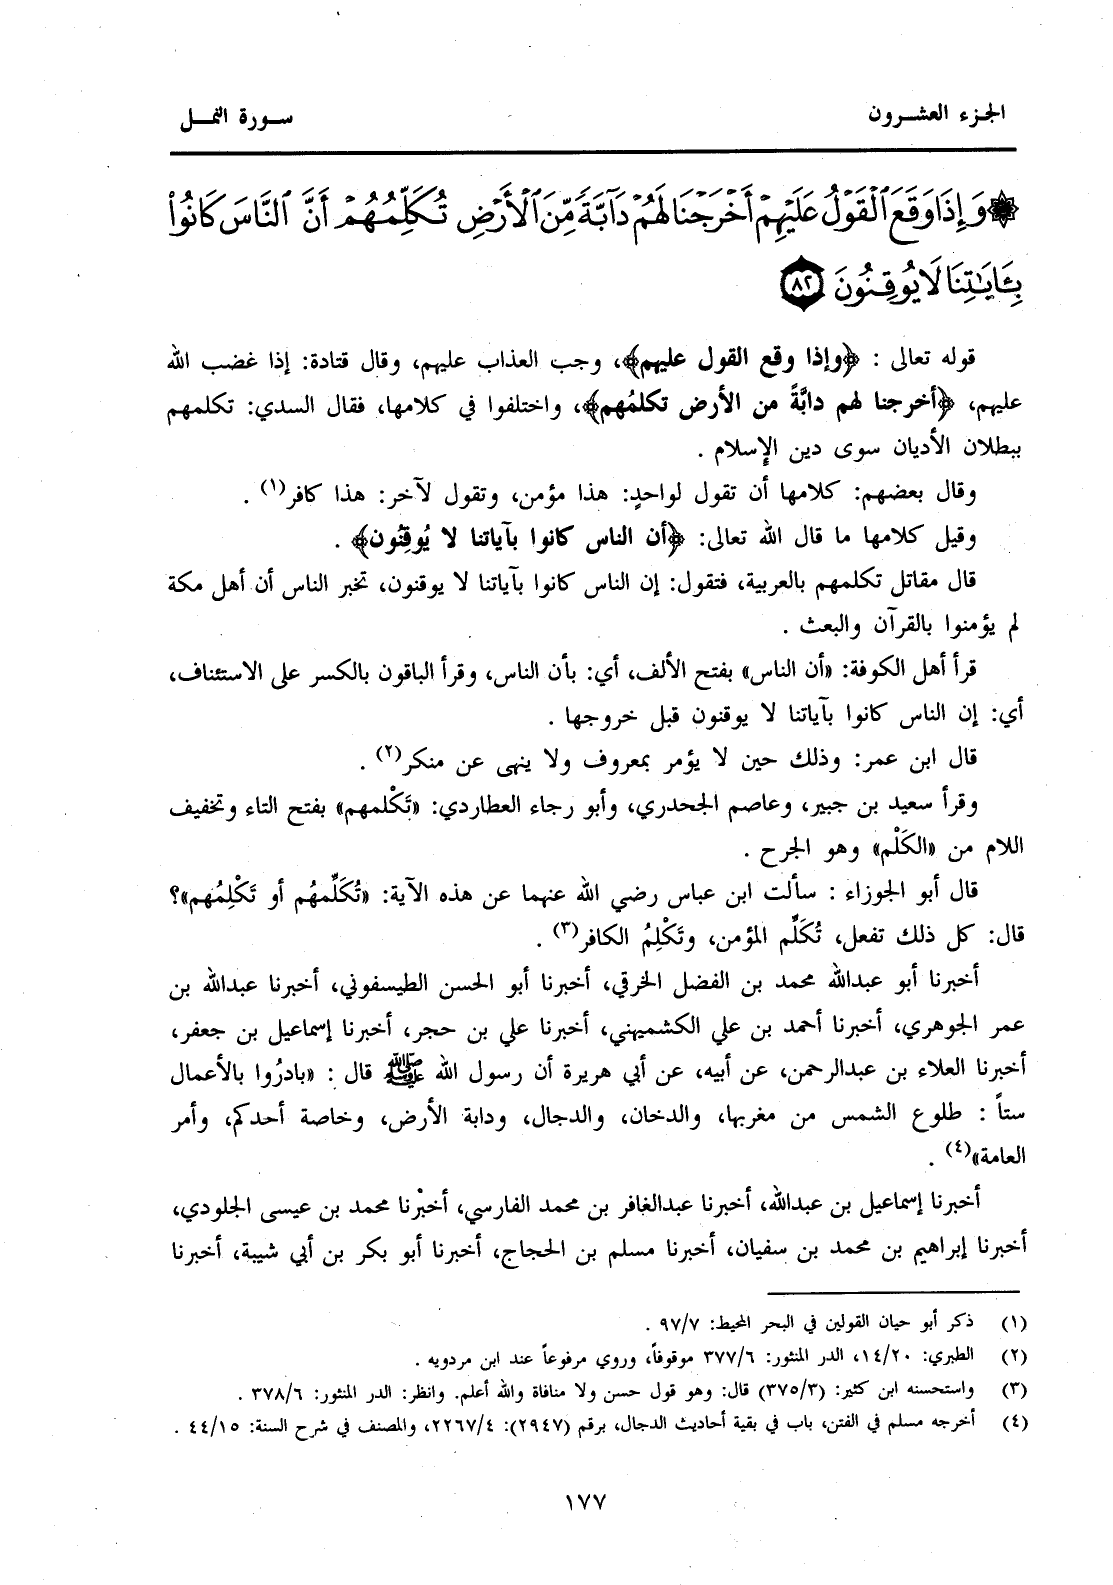 الجزء العشرون
سورة النمل
۞ وَإِذَا وَقَعَ ٱلْقَوْلُ عَلَيْهِمْ أَخْرَجْنَا لَهُمْ دَآبَّةً مِّنَ ٱلْأَرْضِ تُكَلِّمُهُمْ أَنَّ ٱلنَّاسَ كَانُوا۟
بِـَٔايَـٰتِنَا لَا يُوقِنُونَ ٨٢
قوله تعالى : ﴿وإذا وقع القول عليهم﴾، وجب العذاب عليهم، وقال قتادة: إذا غضب الله
عليهم، ﴿أخرجنا لهم دابَّةً من الأرض تكلمُهم﴾، واختلفوا في كلامها، فقال السدي: تكلمهم
ببطلان الأديان سوى دين الإسلام .
وقال بعضهم: كلامها أن تقول لواحدٍ: هذا مؤمن، وتقول لآخر: هذا كافر(١) .
وقيل كلامها ما قال الله تعالى: ﴿أن الناس كانوا بآياتنا لا يُوقِنُون﴾ .
قال مقاتل تكلمهم بالعربية، فتقول: إن الناس كانوا بآياتنا لا يوقنون، تخبر الناس أن أهل مكة
لم يؤمنوا بالقرآن والبعث .
قرأ أهل الكوفة: «أن الناس» بفتح الألف، أي: بأن الناس، وقرأ الباقون بالكسر على الاستئناف،
أي: إن الناس كانوا بآياتنا لا يوقنون قبل خروجها .
قال ابن عمر: وذلك حين لا يؤمر بمعروف ولا ينهى عن منكر(٢) .
وقرأ سعيد بن جبير، وعاصم الجحدري، وأبو رجاء العطاردي: «تَكْلمهم» بفتح التاء وتخفيف
اللام من «الكَلْم» وهو الجرح .
قال أبو الجوزاء : سألت ابن عباس رضي الله عنهما عن هذه الآية: «تُكَلِّمهُم أو تَكْلِمُهم»؟
قال: كل ذلك تفعل، تُكَلِّم المؤمن، وتَكْلِمُ الكافر(٣) .
أخبرنا أبو عبدالله محمد بن الفضل الخرقي، أخبرنا أبو الحسن الطيسفوني، أخبرنا عبدالله بن
عمر الجوهري، أخبرنا أحمد بن علي الكشميهني، أخبرنا علي بن حجر، أخبرنا إسماعيل بن جعفر،
أخبرنا العلاء بن عبدالرحمن، عن أبيه، عن أبي هريرة أن رسول الله ﷺ قال : «بادرُوا بالأعمال
ستاً : طلوع الشمس من مغربها، والدخان، والدجال، ودابة الأرض، وخاصة أحدكم، وأمر
العامة»(٤) .
أخبرنا إسماعيل بن عبدالله، أخبرنا عبدالغافر بن محمد الفارسي، أخبرْنا محمد بن عيسى الجلودي،
أخبرنا إبراهيم بن محمد بن سفيان، أخبرنا مسلم بن الحجاج، أخبرنا أبو بكر بن أبي شيبة، أخبرنا
(١) ذكر أبو حيان القولين في البحر المحيط: ٩٧/٧ .
(٢) الطبري: ١٤/٢٠، الدر المنثور: ٣٧٧/٦ موقوفاً، وروي مرفوعاً عند ابن مردويه .
(٣) واستحسنه ابن كثير: (٣٧٥/٣) قال: وهو قول حسن ولا منافاة والله أعلم. وانظر: الدر المنثور: ٣٧٨/٦ .
(٤) أخرجه مسلم في الفتن، باب في بقية أحاديث الدجال، برقم (٢٩٤٧): ٢٢٦٧/٤، والمصنف في شرح السنة: ٤٤/١٥ .
١٧٧